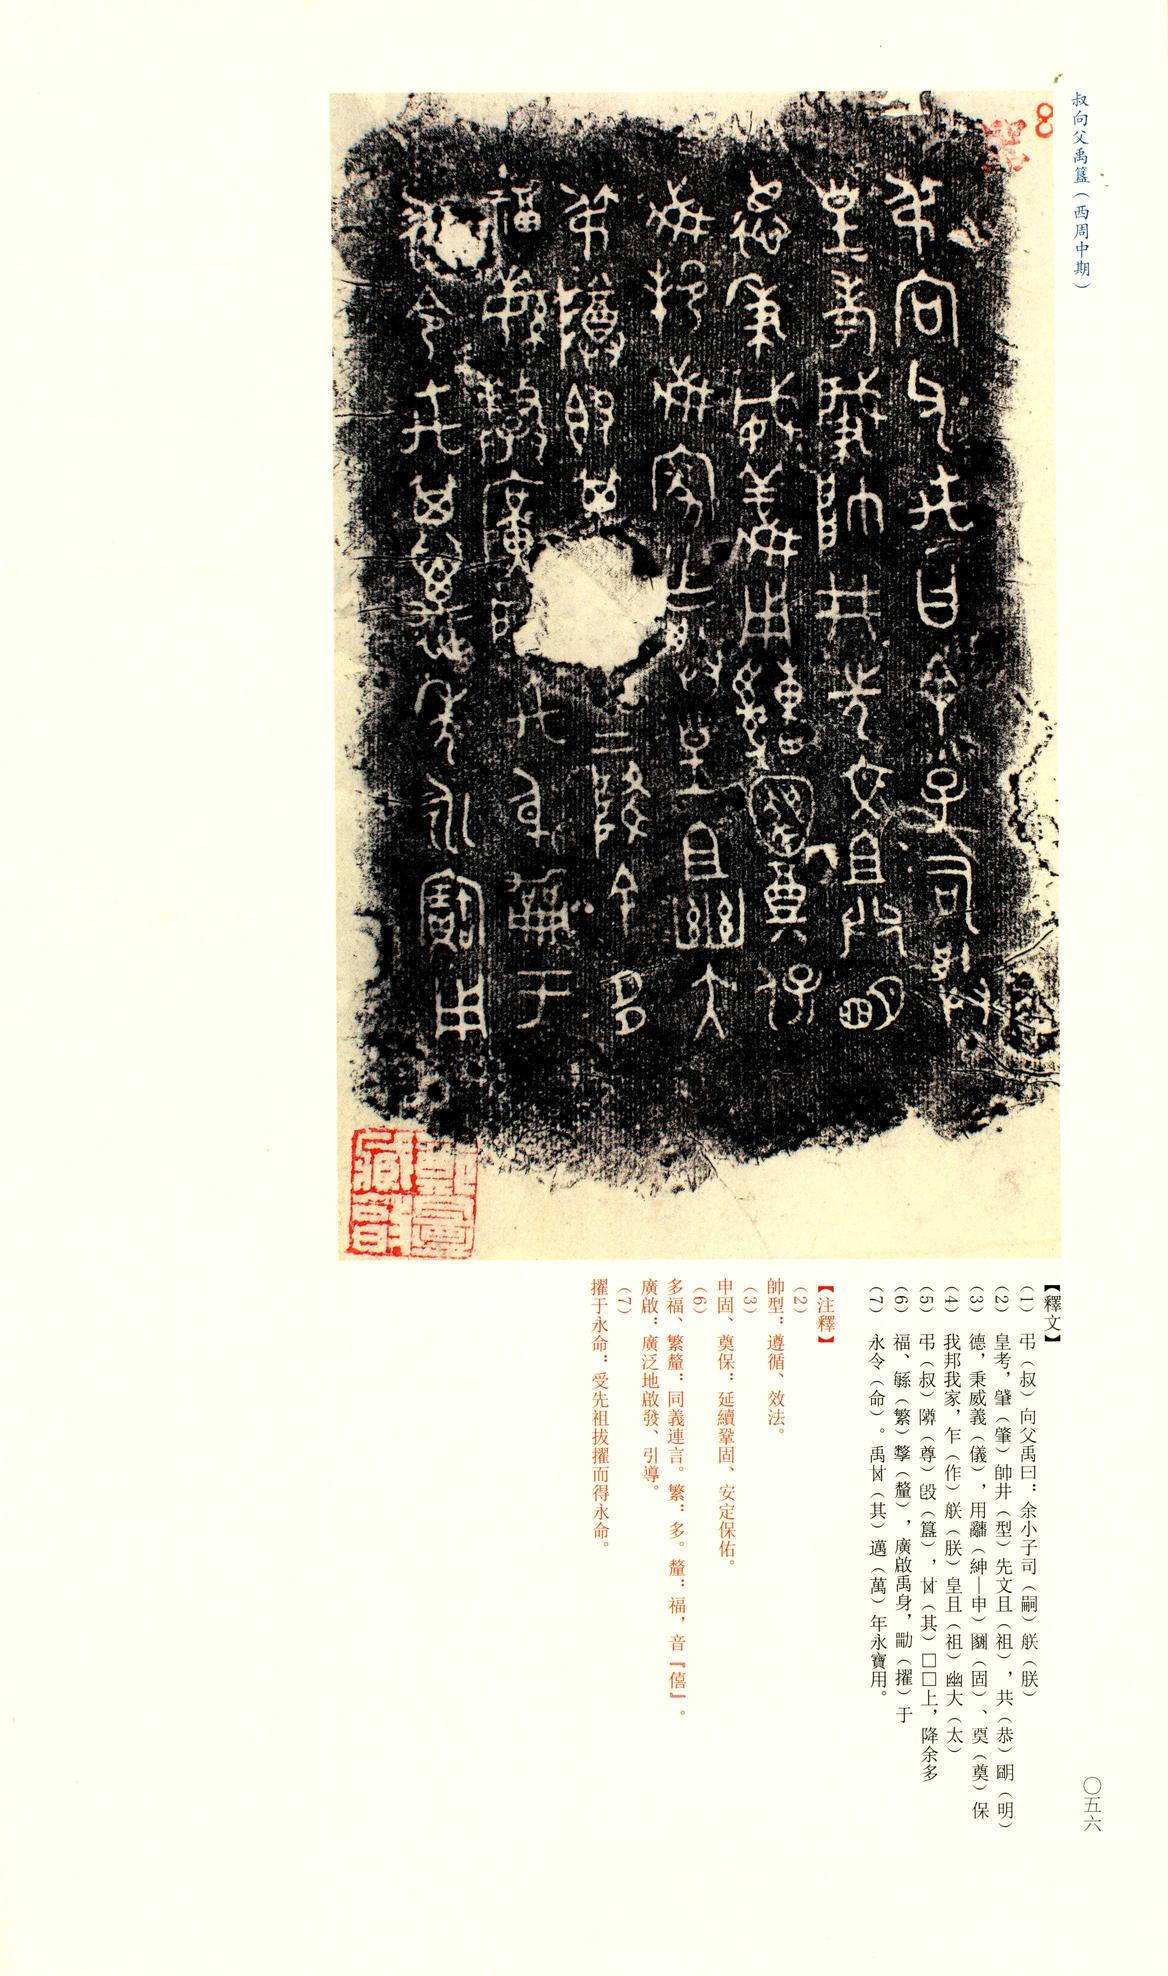 叔向父禹簋（西周中期）
【釋文】
（1） 弔（叔）向父禹曰：余小子司（嗣）朕（朕）
（2） 皇考，肈（肇）帥井（型）先文且（祖），共（恭）朙（明）
（3） 德，秉威義（儀），用𤔲（紳—申）圞（固）、奠（奠）保
（4） 我邦我家，乍（作）朕（朕）皇且（祖）幽大（太）
（5） 弔（叔）隣（尊）𣪘（簋），𠀠（其）□□上，降余多
（6） 福、緐（繁）孷（釐），廣啟禹身，勵（擢）于
（7） 永令（命）。禹𠀠（其）邁（萬）年永寶用。
【注釋】
（2）
帥型：遵循、效法。
（3）
申固、奠保：延續鞏固、安定保佑。
（6）
多福、繁釐：同義連言。繁：多。釐：福，音『僖』。
廣啟：廣泛地啟發、引導。
（7）
擢于永命：受先祖拔擢而得永命。
〇五六